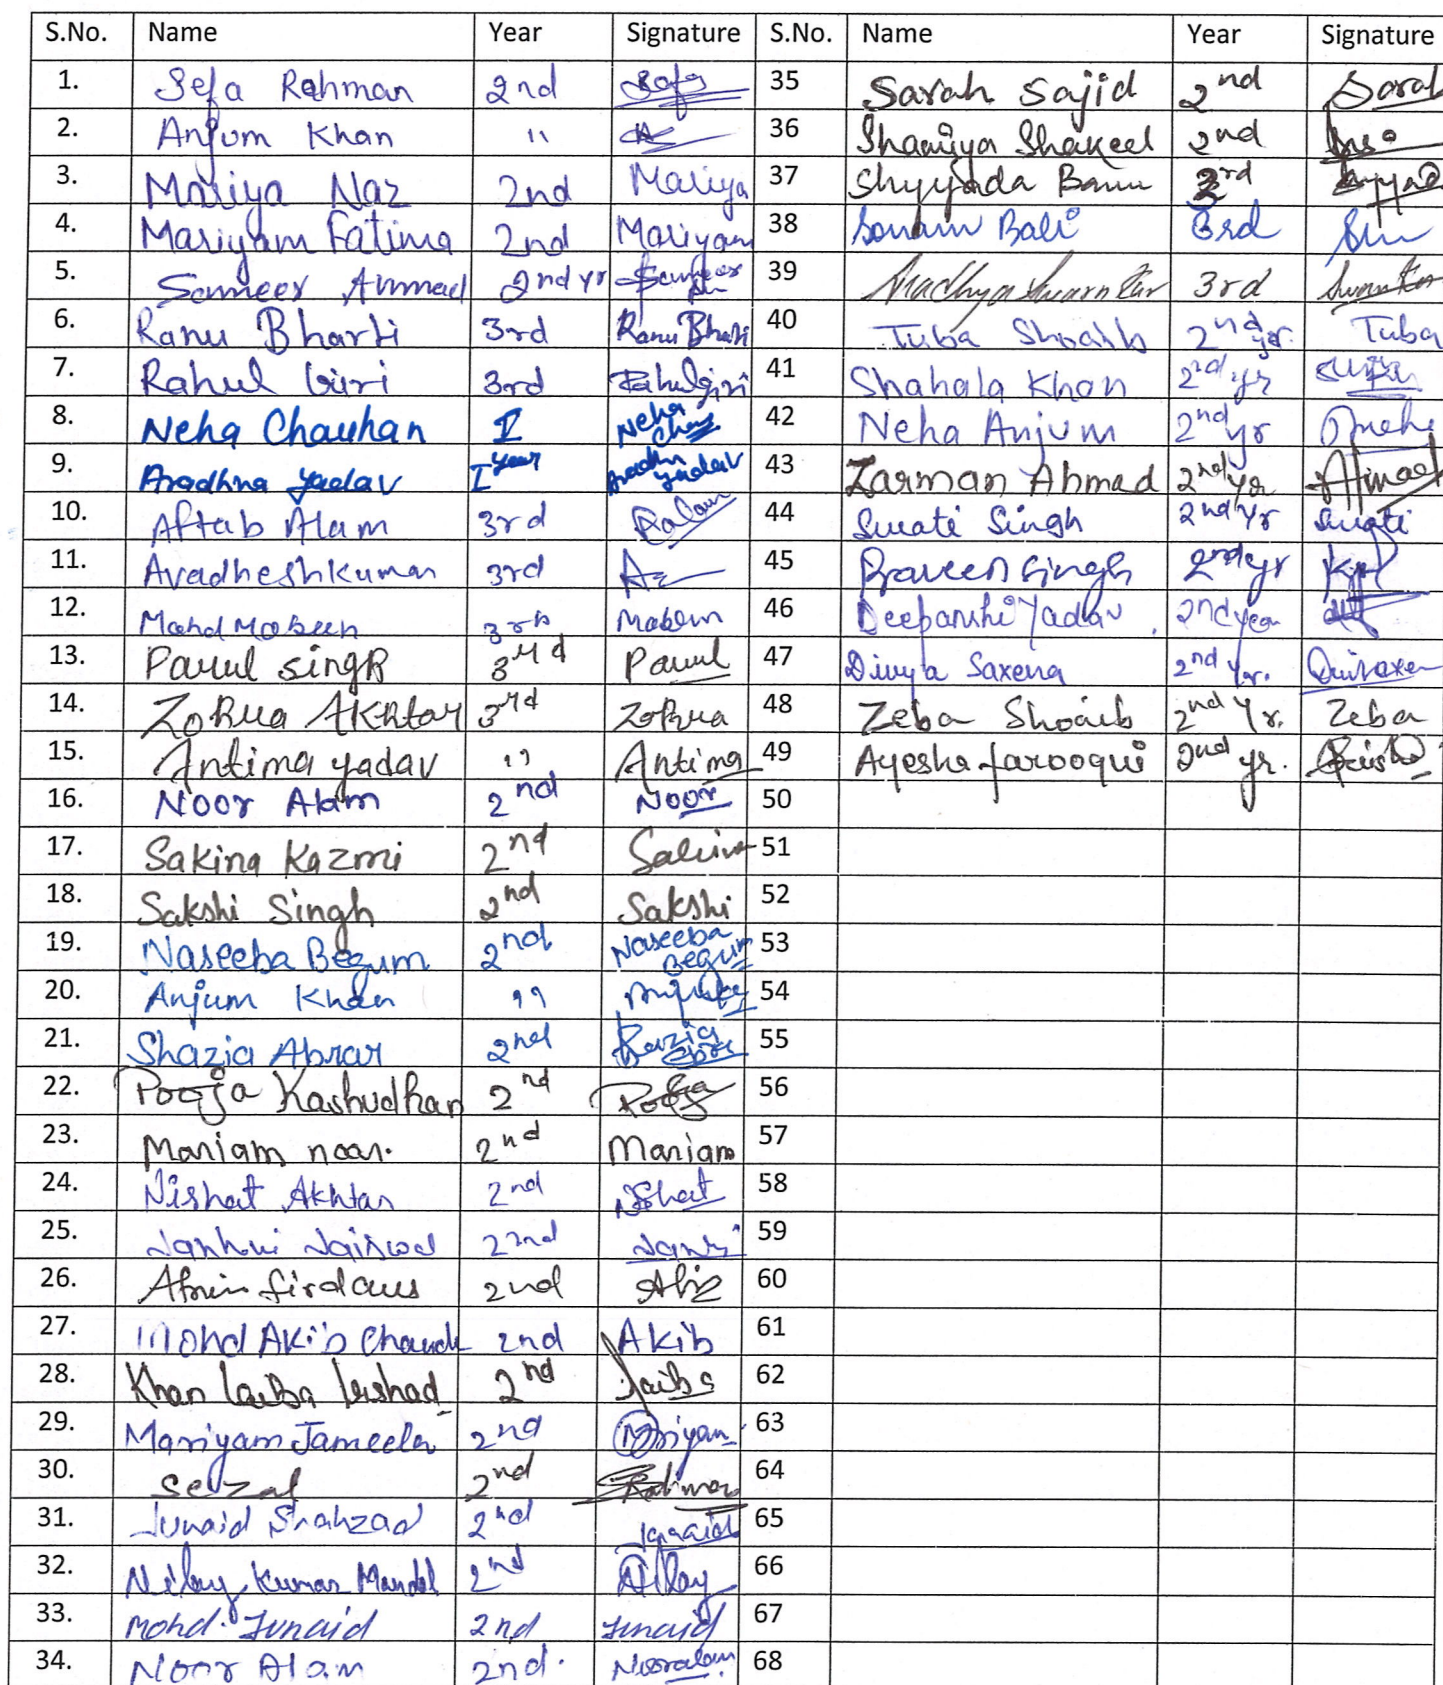 S.No. Name Year Signature S.No. Name Year Signature
1. Sefa Rahman 2nd Safa 35 Sarah Sajid 2nd Sarah
2. Anjum Khan " 36 Shaniya Shakeel 2nd
3. Mariya Naz 2nd Mariya 37 Shyyada Banu 3rd
4. Mariyam Fatima 2nd Mariyam 38 Sonam Bali 3rd
5. Sameer Ahmad 2nd yr Sameer 39 Aradhya Swarnkar 3rd
6. Ranu Bharti 3rd Ranu Bharti 40 Tuba Shoaib 2nd yr. Tuba
7. Rahul Giri 3rd Rahul giri 41 Shahala Khan 2nd yr
8. Neha Chauhan I Neha 42 Neha Anjum 2nd yr
9. Aradhna Yadav I year Aradhna yadav 43 Zarman Ahmad 2nd yr Ahmad
10. Aftab Alam 3rd 44 Swati Singh 2nd yr Swati
11. Avadhesh kumar 3rd 45 Praveen Singh 2nd yr
12. Mohd Mobeen 3rd Mobeen 46 Deepanshi Yadav 2nd year
13. Parul Singh 3rd Parul 47 Divya Saxena 2nd Yr.
14. Zohra Akhtar 3rd Zohra 48 Zeba Shoaib 2nd Yr. Zeba
15. Antima yadav " Antima 49 Ayesha farooqui 2nd yr.
16. Noor Alam 2nd Noor 50
17. Sakina Kazmi 2nd Sakina 51
18. Sakshi Singh 2nd Sakshi 52
19. Naseeba Begum 2nd Naseeba Begum 53
20. Anjum Khan " 54
21. Shazia Abrar 2nd 55
22. Pooja Kashudhan 2nd Pooja 56
23. Mariam noor. 2nd Mariam 57
24. Nishat Akhtar 2nd Nishat 58
25. Janhvi Jaiswal 2nd 59
26. Afrin firdaus 2nd 60
27. Mohd Akib 2nd Akib 61
28. Khan Laiba Irshad 2nd Laiba 62
29. Mariyam Jameela 2nd Mariyam 63
30. 2nd 64
31. Junaid Shahzad 2nd Junaid 65
32. Nilay Kumar Mandal 2nd Nilay 66
33. Mohd. Junaid 2nd Junaid 67
34. Noor Alam 2nd. Nooralam 68